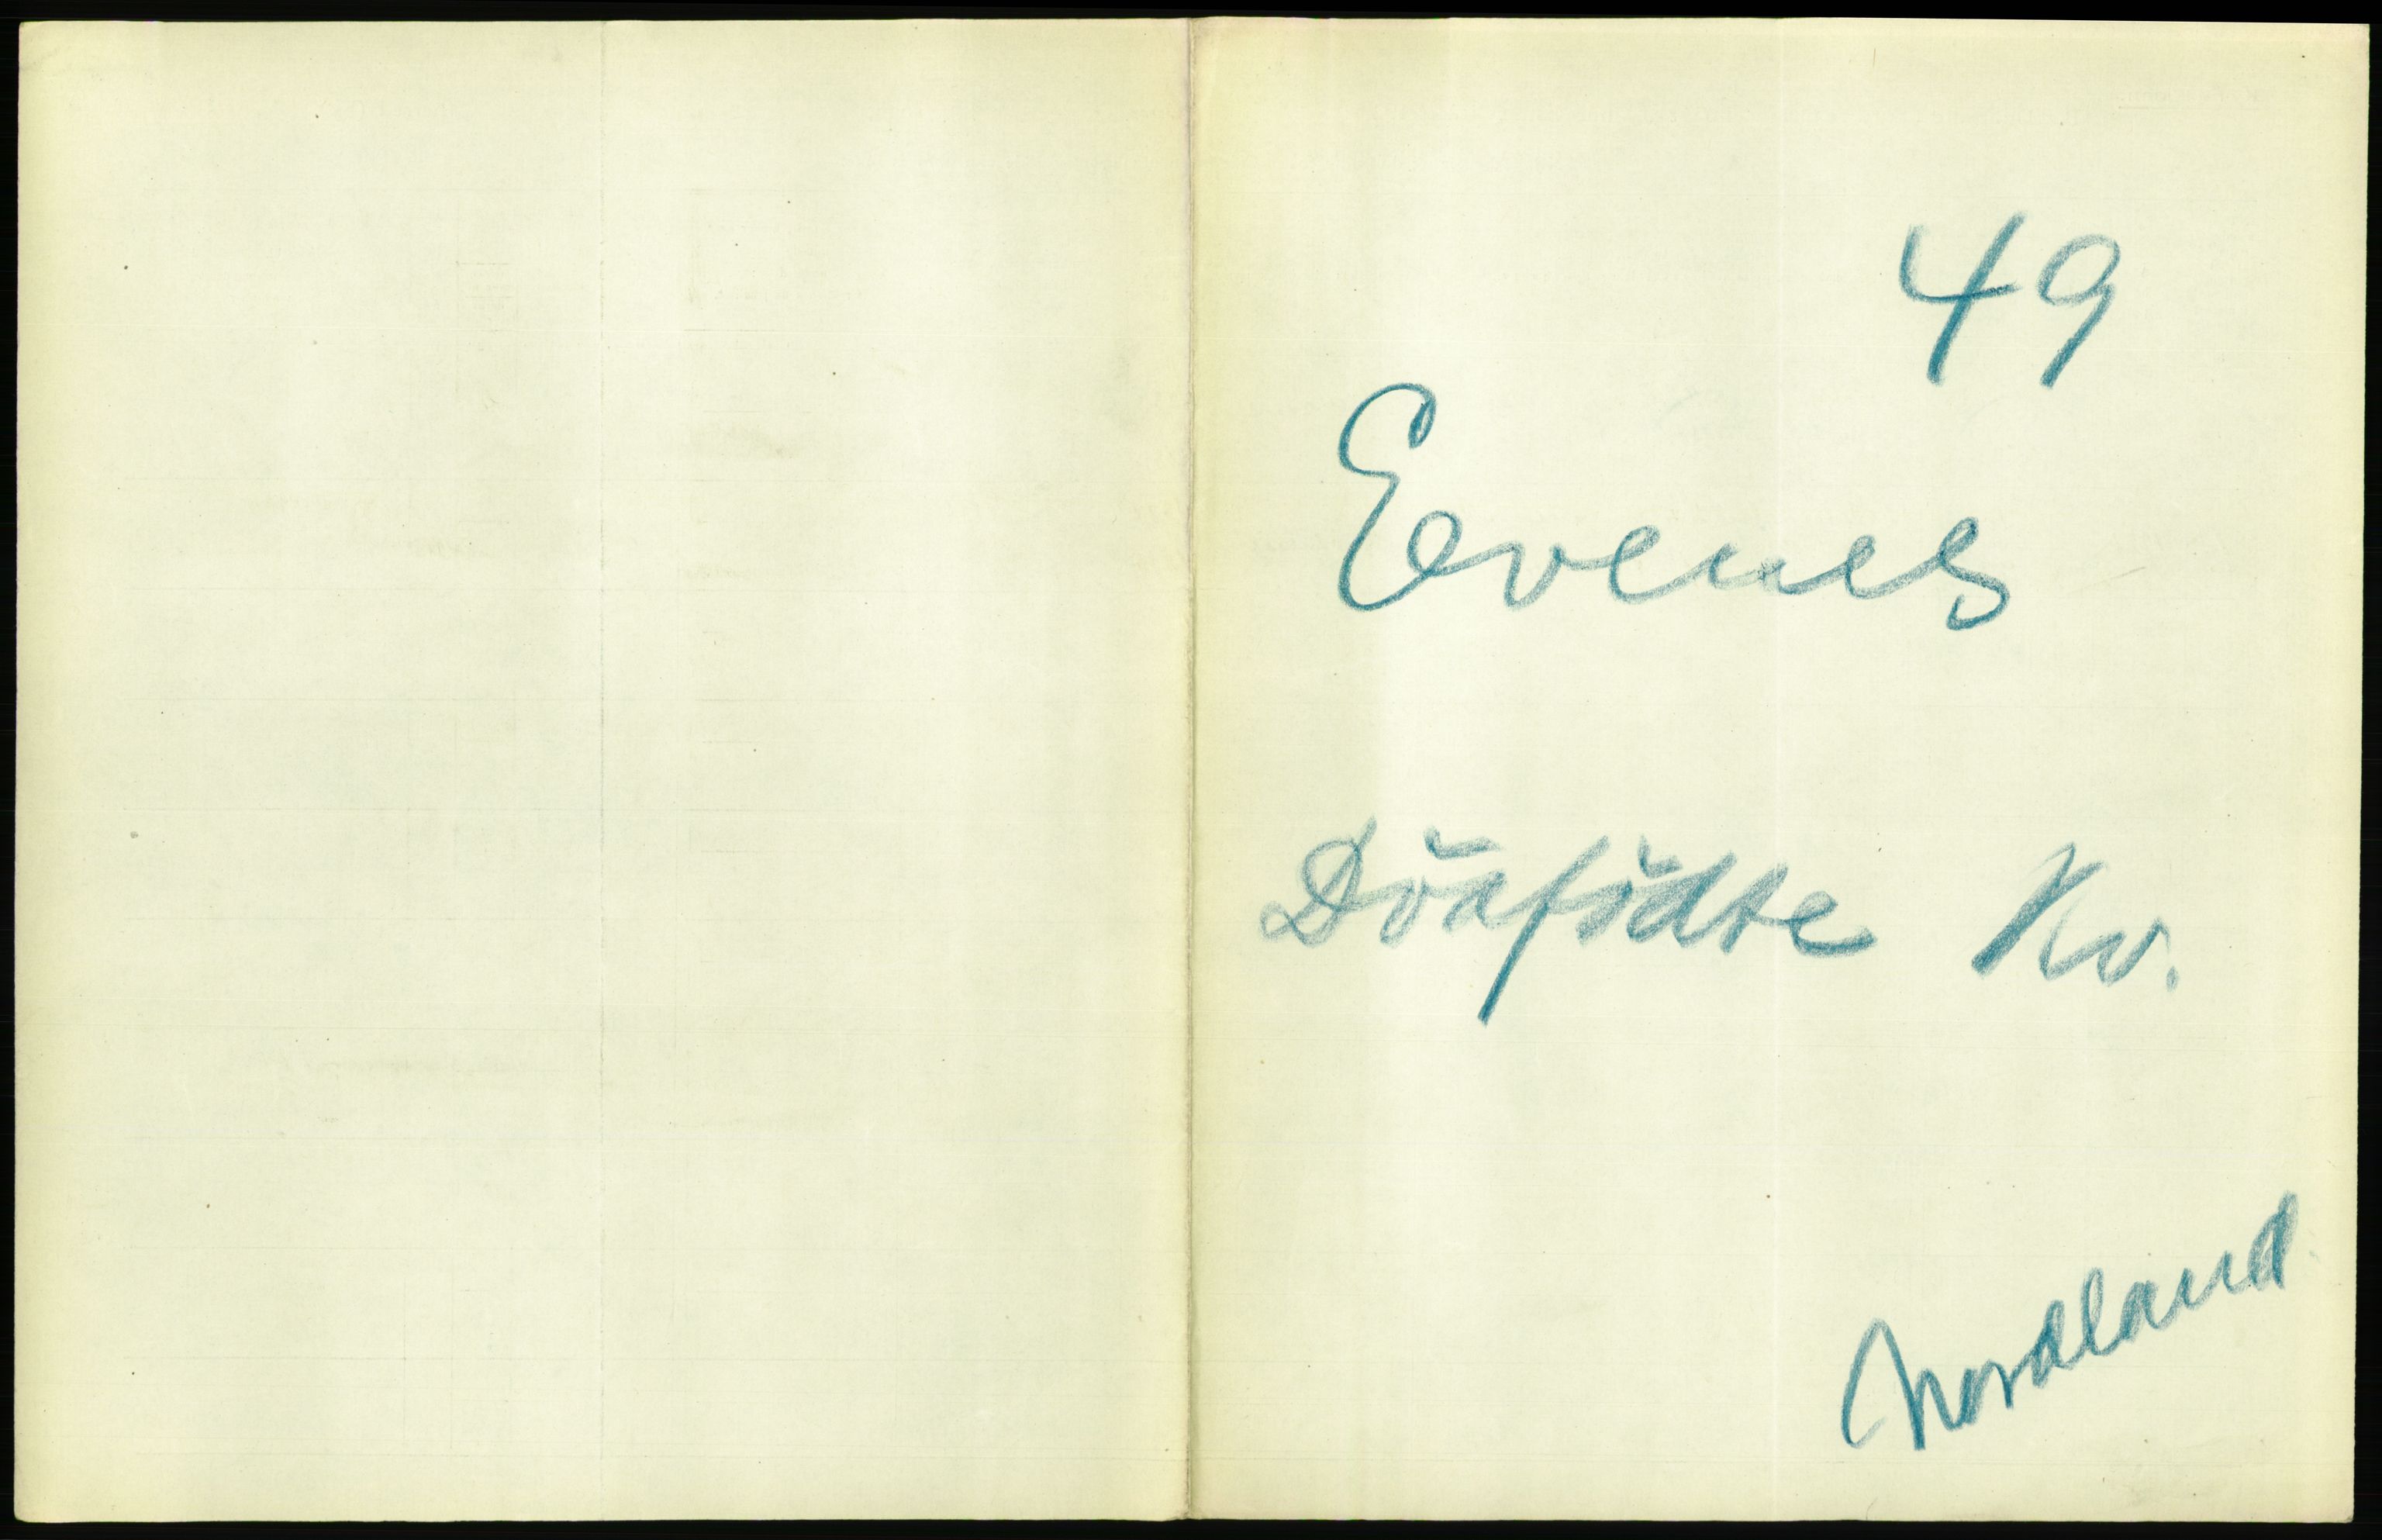 49
Evenes
Döafödte Kv.
Nordland